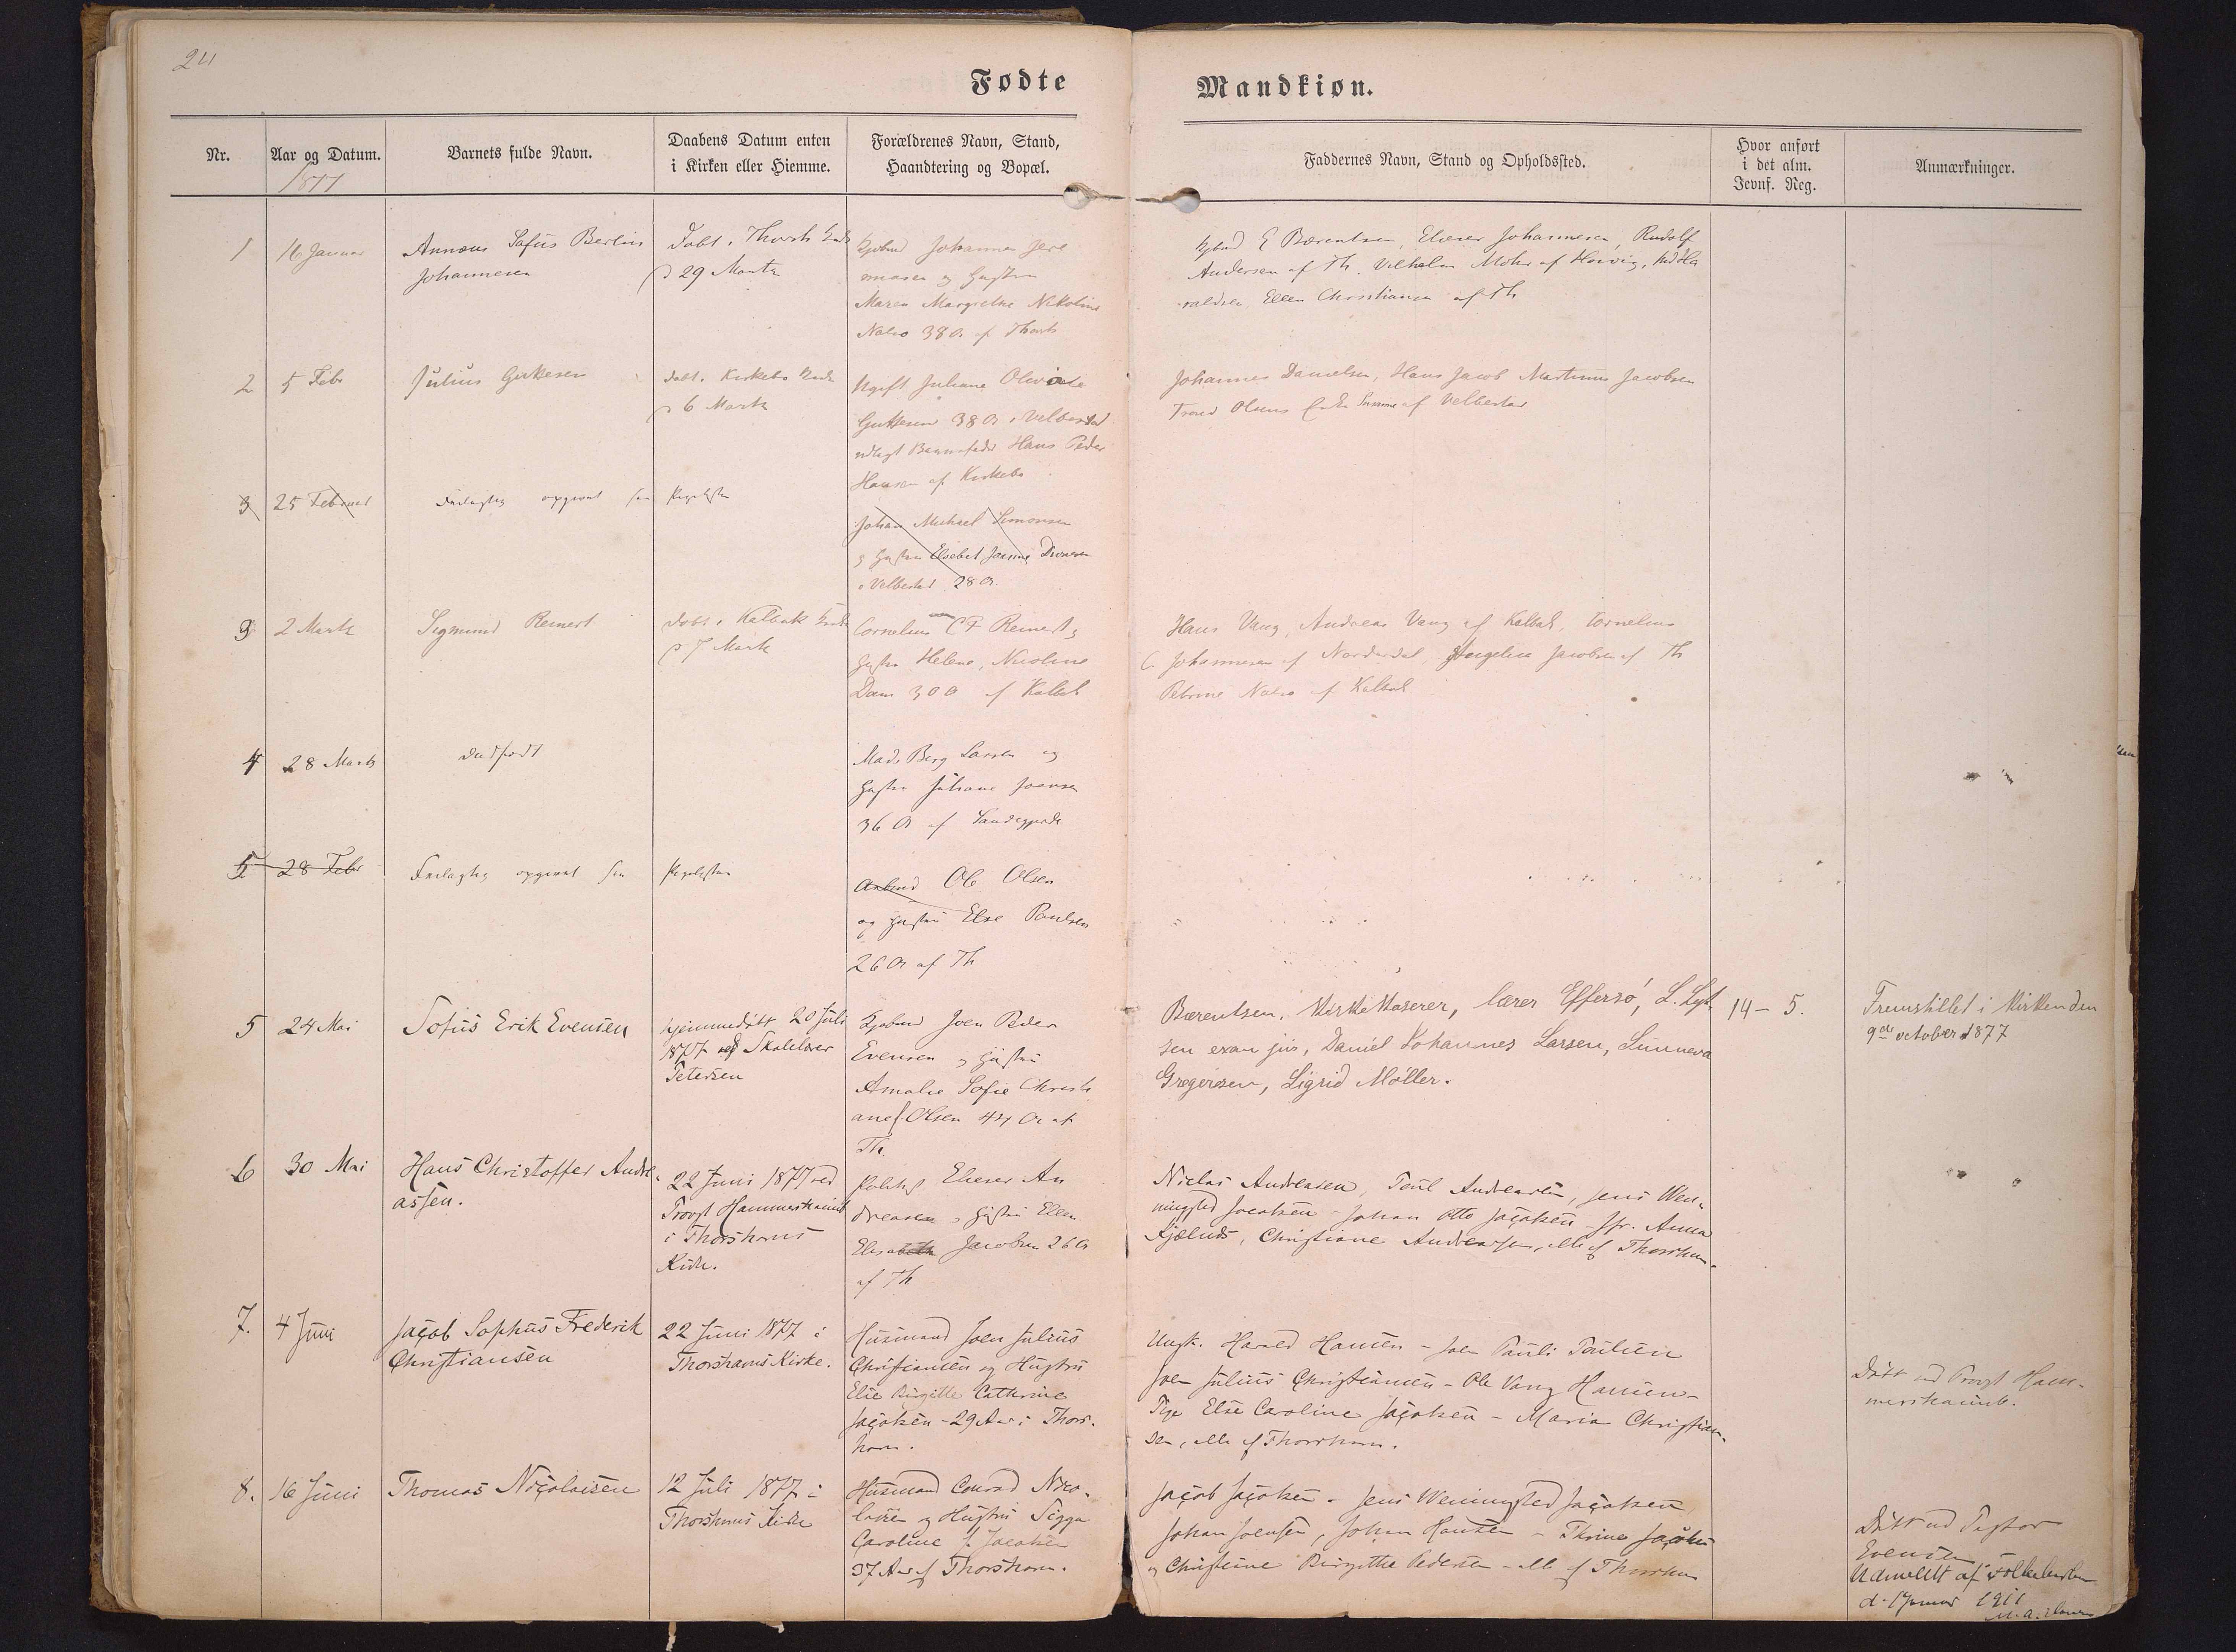 24
Fødte
Mandkiøn.
Nr.
Aar og Datum.
1877
Barnets fulde Navn.
Daabens Datum enten
i Kirken eller Hiemme.
Forældrenes Navn, Stand,
Haandtering og Bopæl.
Faddernes Navn, Stand og Opholdssted.
Hvor anført
i det alm.
Jevnf. Reg.
Anmærkninger.
1
16 Januar
Sofus Berlin
Johannesen
Døbt i Thorsh
29 Marts
Johannes Jere
miasen og Hustru
Maren Margrethe Nikoline
38 A af Thorsh
E Bærentsen, Elieser Johannesen, Rudolf
Andersen af Th. Vilhelm Mohr af Hoivig,
raldsen Ellen Christiansen af Th
2
5 Febr
Julius
Døbt i Kirkebø
6 Marts
Ugift Juliane
38 A i Velbestad
udlagt Barnefader Hans Peder
Hansen af Kirkebø
Johannes Danielsen, Hans Jacob Martinus Jacobsen
Olsens af Velbestad
3
25 Februar
opgivet
Johan Michael Simonsen
Elsebet
i Velbestad 28 A.
3
2 Marts
Sigmund Reinert
Døbt i Kalbak
7 Marts
Cornelius C F Reinert og
Hustru Helene, Nicoline
Dam 30 A af Kalbak
Hans Vang, Andreas Vang af Kalbak, Cornelius
Johannesen af Norderdal, Angelica Jacobsen af Th
Petrine af Kalbak
4
28 Marts
dødfødt
Mads Berg Larsen og
Hustru Juliane Joensen
36 A af
5
28 Febr
opgivet
Ole Olsen
og Hustru Else Poulsen
26 A af Th
5
24 Mai
Sofus Erik Evensen
hjemmedøbt 20 Juli
1877 af Skolelærer
Petersen
Joen Peder
Evensen og Hustru
Amalie Sofie Christi
ane f. Olsen 44 A af
Th
Bærentsen, Kirkekaserer, lærer Effersø, L. Lyt-
zen exam jur, Daniel Johannes Larsen, Sunneva
Gregersen, Sigrid Møller.
14 - 5.
Fremstillet i Kirken den
9de october 1877
6
30 Mai
Hans Christoffer Andre-
assen.
22 Juni 1877 ved
Provst Hammershaimb
i Thorshavns
Kirke.
Elieser An
dreasen og Hustru Ellen
Elisabeth Jacobsen 26 A
af Th
Niclas Andreasen, Poul Andreasen, Jens Wen-
ningsted Jacobsen - Johan Otto Jacobsen - Jfr. Anna
Christiane Andreassen, alle af Thorshavn.
7.
4 Juni
Jacob Sophus Frederik
Christiansen
22 Juni 1877 i
Thorshavns Kirke.
Husmand Joen Julius
Christiansen og Hustru
Else Birgitte Cathrine
Jacobsen - 29 Aar i Thors-
havn.
Ungk. Harald Hansen - Joen Pauli Poulsen
Joen Julius Christiansen - Ole Vang Hansen -
Pige Else Caroline Jacobsen - Maria Christian-
sen, alle af Thorshavn.
Døbt ved Provst Ham-
mershaimb.
8.
16 Juni
Thomas Nicolaisen
12 Juli 1877 i
Thorshavns Kirke
Husmand Conrad Nico-
laisen og Hustru Sigga
Caroline f. Jacobsen
37 Aar af Thorshavn.
Jacob Jacobsen - Jens Wenningsted Jacobsen
Johan Joensen, Johan Hansen - Thrine Jacobsen
og Christine Birgitte Pedersen - alle af Thorshavn
Døbt ved Pastor
Evensen
Udmeldt af Folkekirken
d. Januar 1911